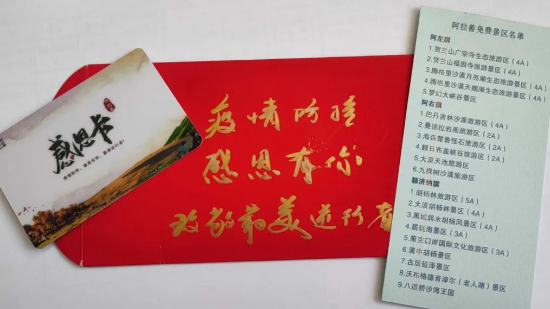 感恩卡
疫情阶段
感恩有你
致敬最美逆行
阿拉善免费景区名单
阿左旗
1.贺兰山广宗寺生态旅游区(4A)
2.贺兰山福因寺旅游景区(4A)
3.腾格里沙漠月亮湖生态旅游景区(4A)
4.腾格里沙漠天鹅湖生态旅游景区(2A)
5.梦幻大峡谷景区
阿右旗
1.巴丹吉林沙漠旅游区(4A)
2.曼德拉岩画旅游区(2A)
3.海森楚鲁怪石旅游区(2A)
4.额日布盖峡谷旅游区(2A)
5.大漠天池旅游区
6.九棵树沙漠旅游区
额济纳旗
1.胡杨林旅游区(5A)
2.大漠胡杨林景区(4A)
3.黑城弱水胡杨风景区(4A)
4.居延海景区(3A)
5.策克口岸国际文化旅游区(3A)
6.漠中胡杨景区
7.古居延泽景区
8.沃布格德肯浩尔(老人湖)景区
9.八道桥沙海王国